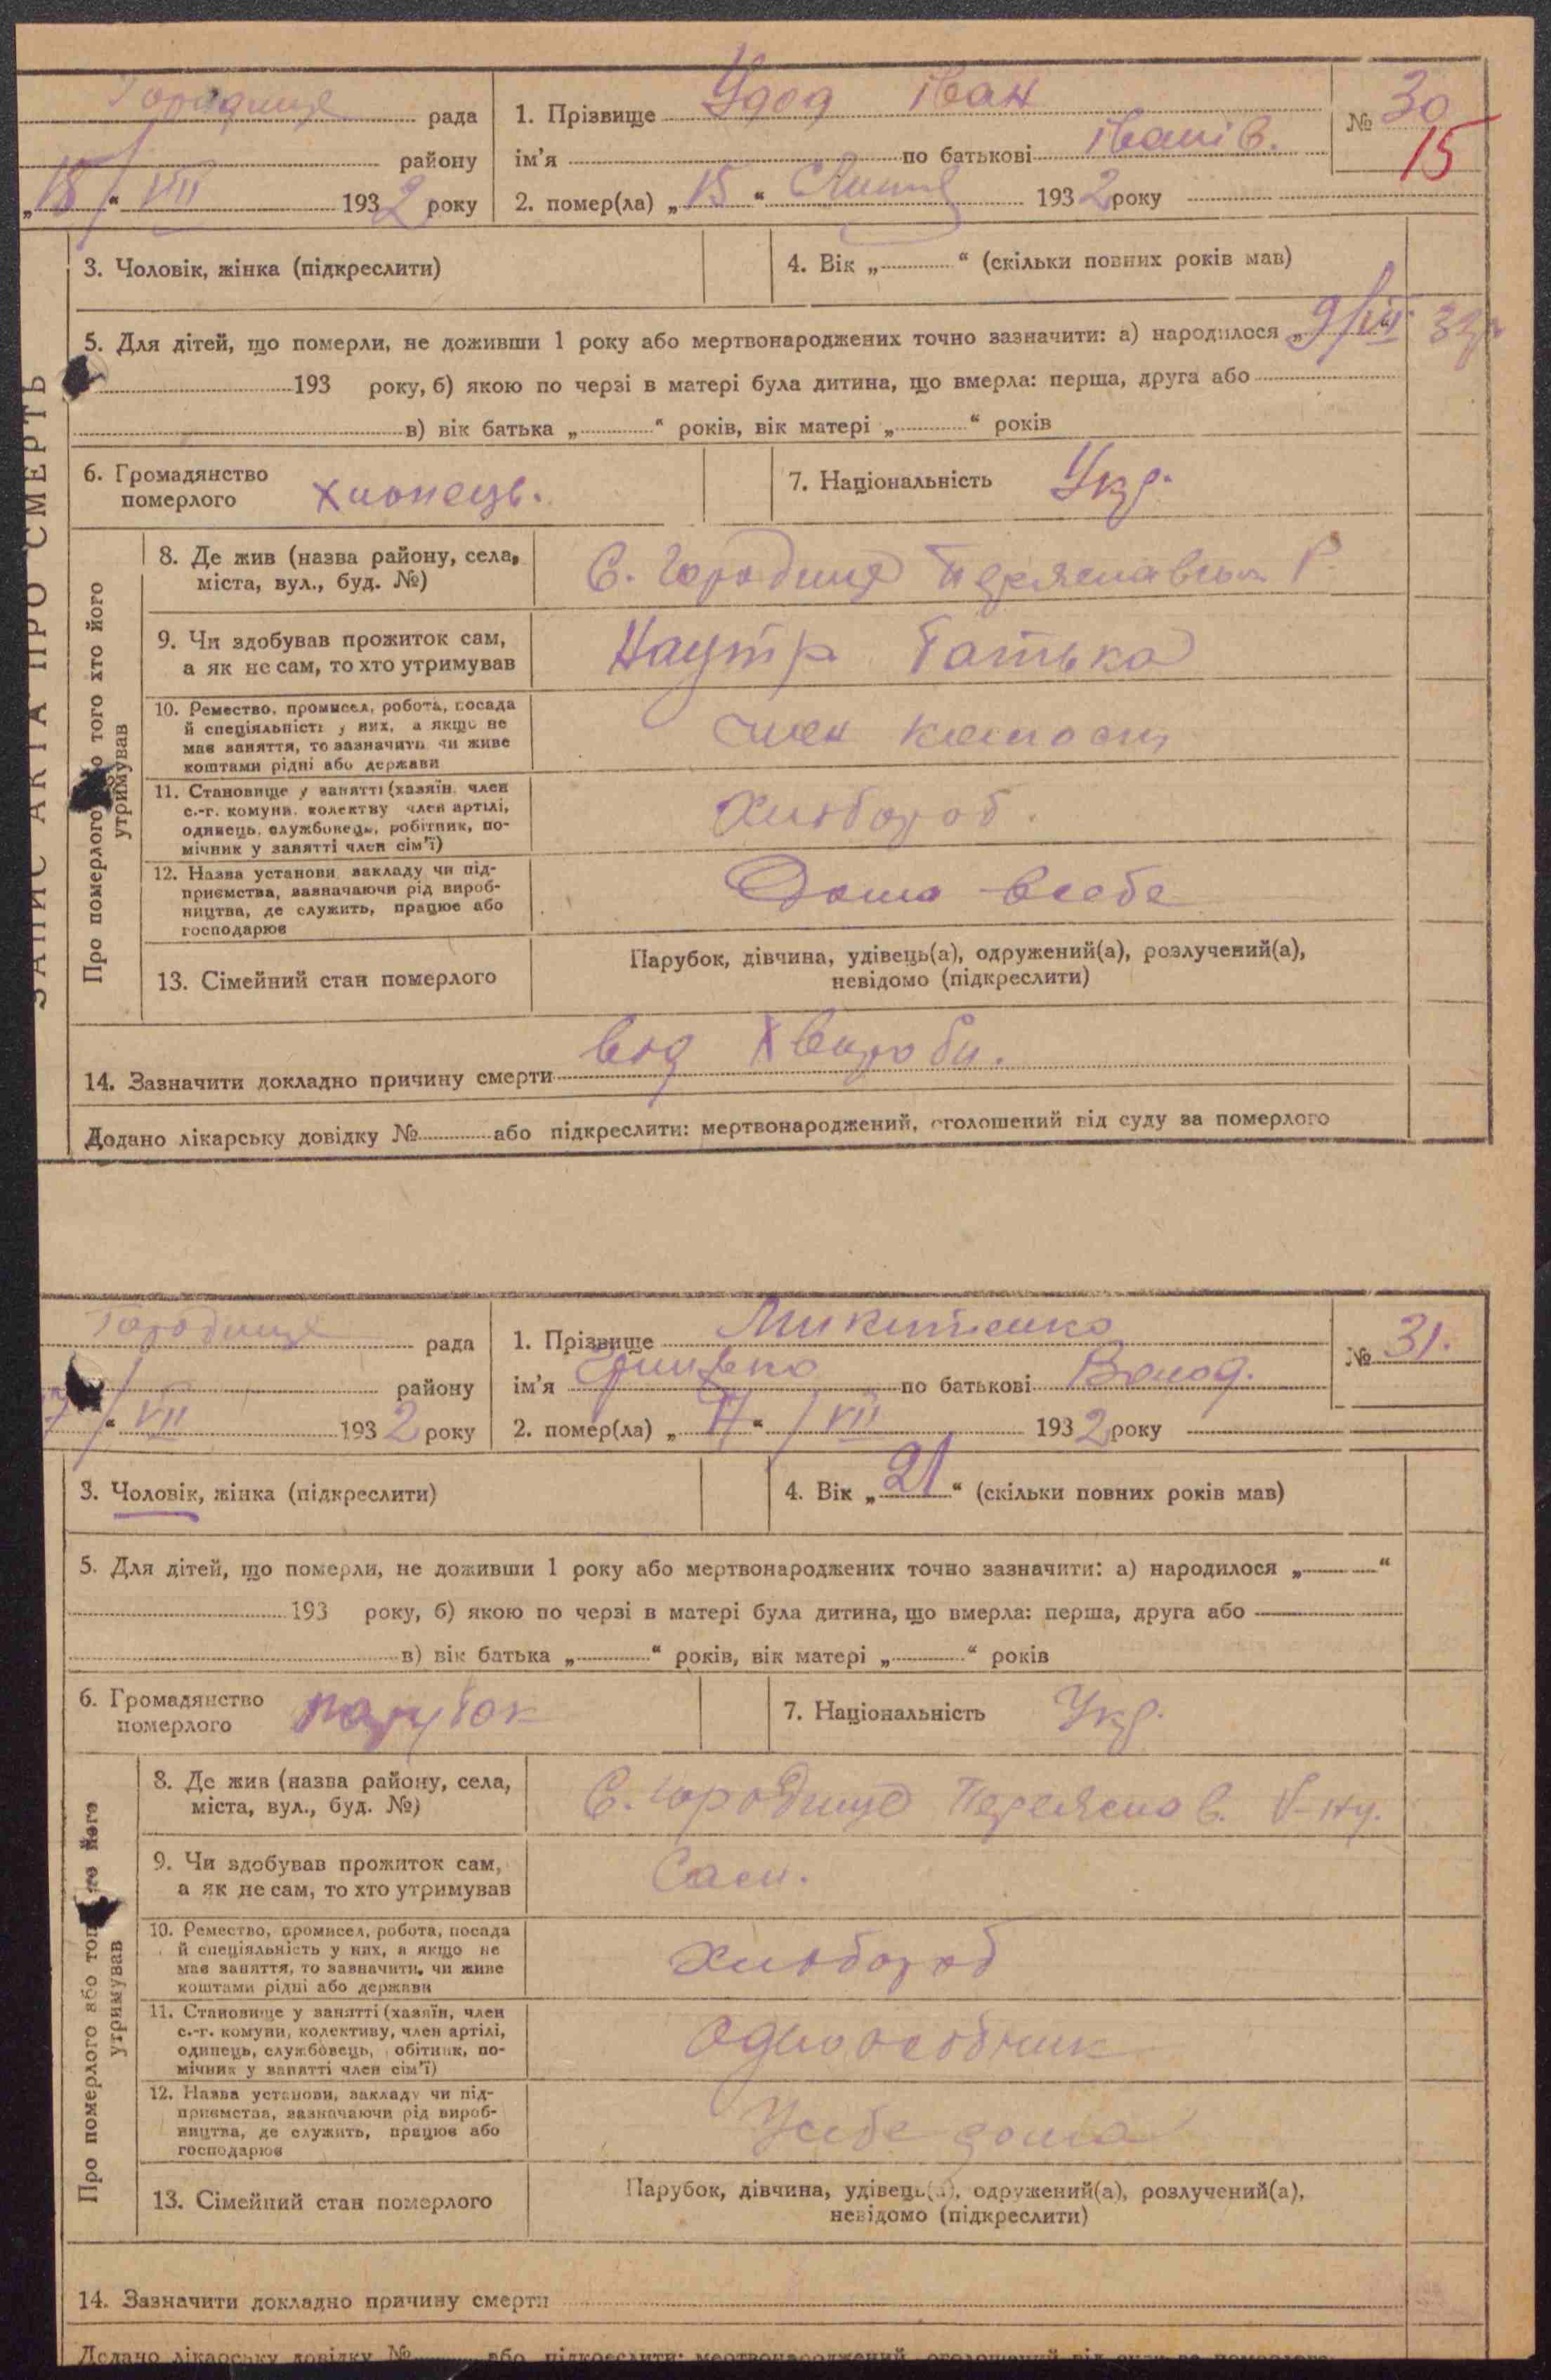 Городище рада
1. Прізвище Удод Іван
№ 30
15
району
ім'я по батькові Іванів.
„15“ VII 1932 року
2. помер(ла) „15“ Липня 1932 року
ЗАПИС АКТА ПРО СМЕРТЬ
3. Чоловік, жінка (підкреслити)
4. Вік „ “ (скільки повних років мав)
5. Для дітей, що померли, не доживши 1 року або мертвонароджених точно зазначити: а) народилося „9/VII
193 року, б) якою по черзі в матері була дитина, що вмерла: перша, друга або
в) вік батька „ “ років, вік матері „ “ років
6. Громадянство
померлого хлопець.
7. Національність Укр.
Про померлого або того хто його
утримував
8. Де жив (назва району, села,
міста, вул., буд. №)
С. Городище Переяславськ Р.
9. Чи здобував прожиток сам,
а як не сам, то хто утримував
На утр батька
10. Ремество, промисел, робота, посада
й спеціяльність у них, а якщо не
має заняття, то зазначити чи живе
коштами рідні або держави
член
11. Становище у занятті (хазяїн, член
с.-г. комуни, колектву член артілі,
одинець, службовець, робітник, по-
мічник у занятті член сім'ї)
Хлібороб.
12. Назва установи закладу чи під-
приємства, зазначаючи рід вироб-
ництва, де служить, працює або
господарює
Дома всебе
13. Сімейний стан померлого
Парубок, дівчина, удівець(а), одружений(а), розлучений(а),
невідомо (підкреслити)
14. Зазначити докладно причину смерти від хвороби.
Додано лікарську довідку № або підкреслити: мертвонароджений, оголошений від суду за померлого
Городище рада
1. Прізвище Микитенко
№ 31.
району
ім'я Грицько по батькові Волод.
“ VII 1932 року
2. помер(ла) „ “ VII 1932 року
3. Чоловік, жінка (підкреслити)
4. Вік „21“ (скільки повних років мав)
5. Для дітей, що померли, не доживши 1 року або мертвонароджених точно зазначити: а) народилося „ “
193 року, б) якою по черзі в матері була дитина, що вмерла: перша, друга або
в) вік батька „ “ років, вік матері „ “ років
6. Громадянство
померлого парубок
7. Національність Укр.
Про померлого або того хто його
утримував
8. Де жив (назва району, села,
міста, вул., буд. №)
С. Городище Переяслав. Р-ну.
9. Чи здобував прожиток сам,
а як не сам, то хто утримував
Сам.
10. Ремество, промисел, робота, посада
й спеціяльність у них, а якщо не
має заняття, то зазначити, чи живе
коштами рідні або держави
Хлібороб
11. Становище у занятті (хазяїн, член
с.-г. комуни, колективу, член артілі,
одинець, службовець, робітник, по-
мічник у занятті член сім'ї)
Одноосібник
12. Назва установи, закладу чи під-
приємства, зазначаючи рід вироб-
ництва, де служить, працює або
господарює
Усебе дома
13. Сімейний стан померлого
Парубок, дівчина, удівець(а), одружений(а), розлучений(а),
невідомо (підкреслити)
14. Зазначити докладно причину смерти
Додано лікарську довідку № або підкреслити: мертвонароджений, оголошений від суду за померлого